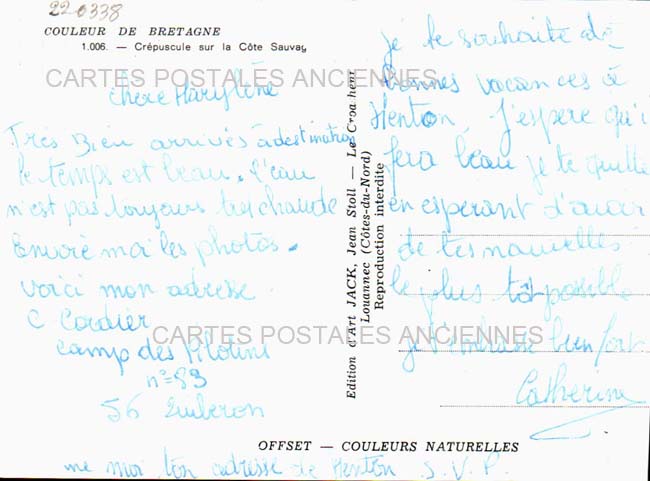 220338
COULEUR DE BRETAGNE
1.006. — Crépuscule sur la Côte Sauvag
CARTES POSTALES ANCIENNES
chère Marylène
Très Bien arrivés à destination
le temps est beau. l'eau
n'est pas toujours très chaude
Envoie moi les photos.
voici mon adresse
C Cordier
CARTES POSTALES ANCIENNES
camp des Pilotins
n° 83
56
Edition d'Art JACK, Jean Stoll — Le Croa hent
Louannec (Côtes-du-Nord)
Reproduction interdite
je te souhaite de
bonnes vacances à
Menton. J'espère qu'i
fera beau je te quitte
en esperant d'avoir
de tes nouvelles
le plus tôt possible
je t'embrasse bien fort
Catherine
OFFSET — COULEURS NATURELLES
me moi ton adresse de Menton S.V.P.